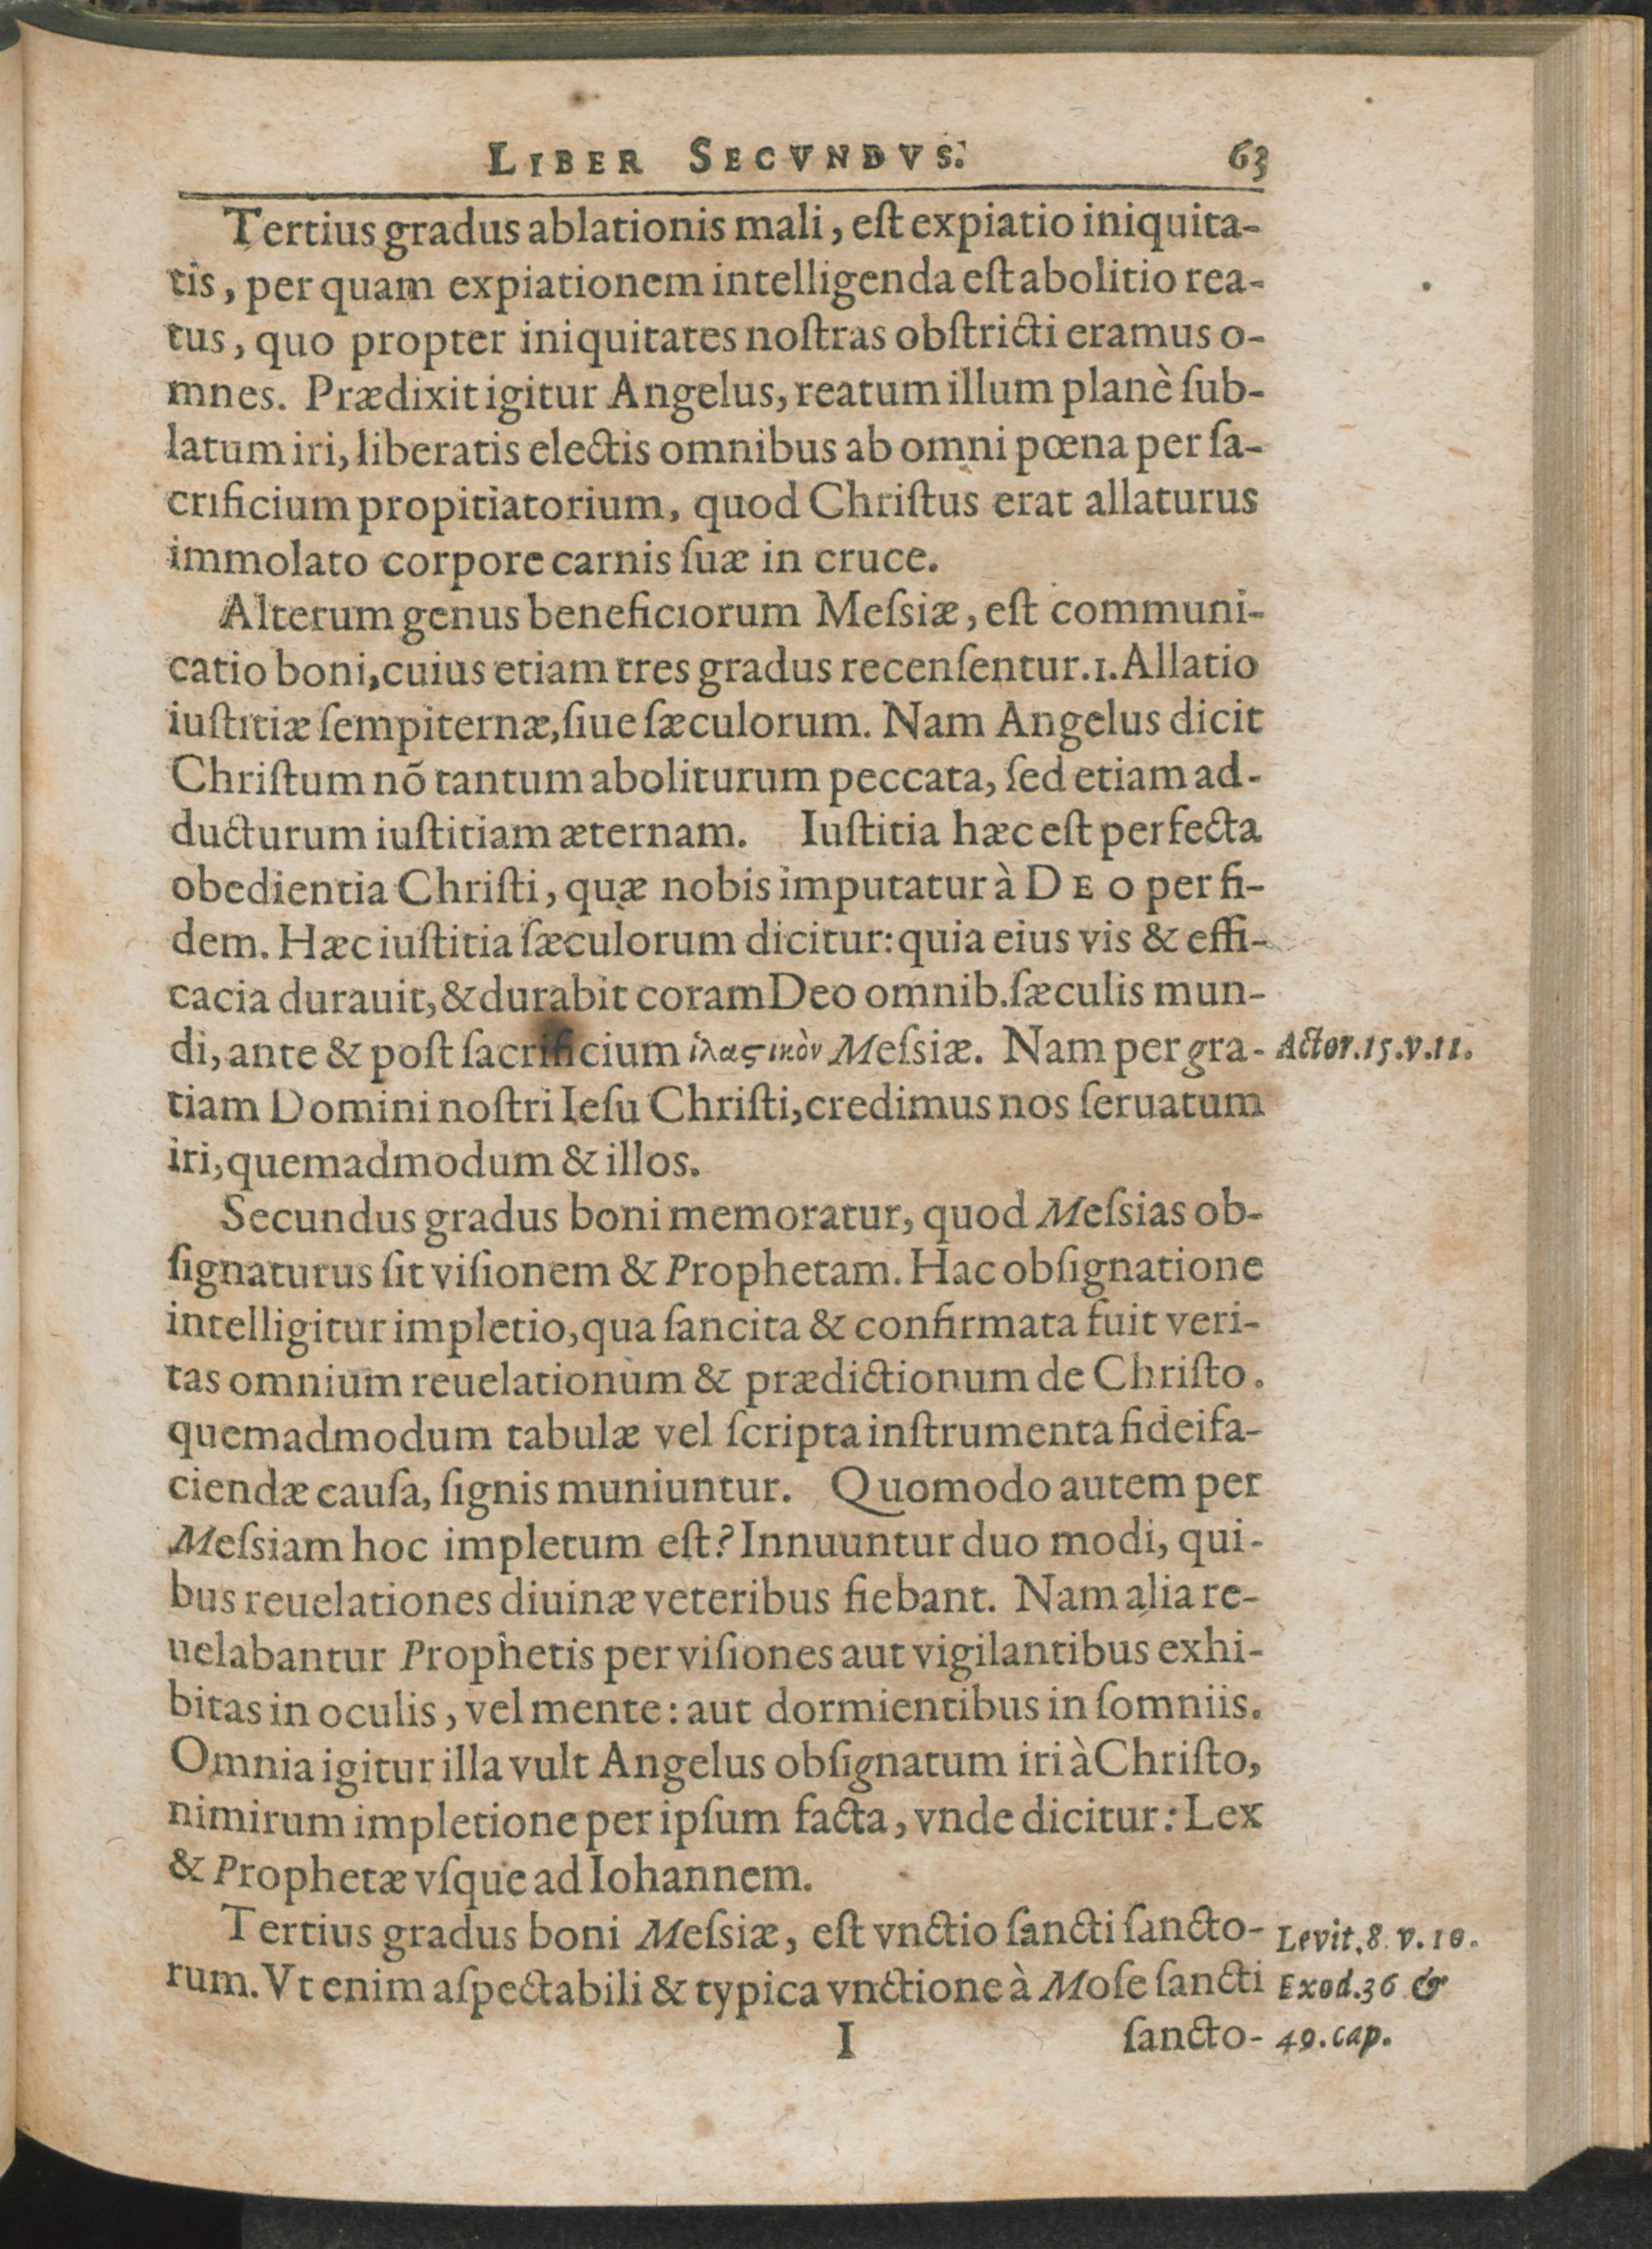 LIBER SECVNDVS. 63
Tertius gradus ablationis mali, eſt expiatio iniquita-
tis, per quam expiationem intelligenda eſt abolitio rea-
tus, quo propter iniquitates noſtras obſtricti eramus o-
mnes. Prædixit igitur Angelus, reatum illum planè ſub-
latum iri, liberatis electis omnibus ab omni pœna per ſa-
crificium propitiatorium, quod Chriſtus erat allaturus
immolato corpore carnis ſuæ in cruce.
Alterum genus beneficiorum Meſsiæ, eſt communi-
catio boni, cuius etiam tres gradus recenſentur. 1. Allatio
iuſtitiæ ſempiternæ, ſiue ſæculorum. Nam Angelus dicit
Chriſtum nō tantum aboliturum peccata, ſed etiam ad-
ducturum iuſtitiam æternam. Iuſtitia hæc eſt perfecta
obedientia Chriſti, quæ nobis imputatur à DEO per fi-
dem. Hæc iuſtitia ſæculorum dicitur: quia eius vis & effi-
cacia durauit, & durabit coram Deo omnib. ſæculis mun-
di, ante & poſt ſacrificium ἱλαϛικὸν Meſsiæ. Nam per gra- Actor. 15. v. 11.
tiam Domini noſtri Ieſu Chriſti, credimus nos ſeruatum
iri, quemadmodum & illos.
Secundus gradus boni memoratur, quod Meſsias ob-
ſignaturus ſit viſionem & Prophetam. Hac obſignatione
intelligitur impletio, qua ſancita & confirmata fuit veri-
tas omnium reuelationum & prædictionum de Chriſto.
quemadmodum tabulæ vel ſcripta inſtrumenta fidei fa-
ciendæ cauſa, ſignis muniuntur. Quomodo autem per
Meſsiam hoc impletum eſt? Innuuntur duo modi, qui-
bus reuelationes diuinæ veteribus fiebant. Nam alia re-
uelabantur Prophetis per viſiones aut vigilantibus exhi-
bitas in oculis, vel mente: aut dormientibus in ſomniis.
Omnia igitur illa vult Angelus obſignatum iri à Chriſto,
nimirum impletione per ipſum facta, vnde dicitur: Lex
& Prophetæ vſque ad Iohannem.
Tertius gradus boni Meſsiæ, eſt vnctio ſancti ſancto- Levit. 8. v. 10.
rum. Vt enim aſpectabili & typica vnctione à Moſe ſancti Exod. 36 &
I ſancto- 40. cap.